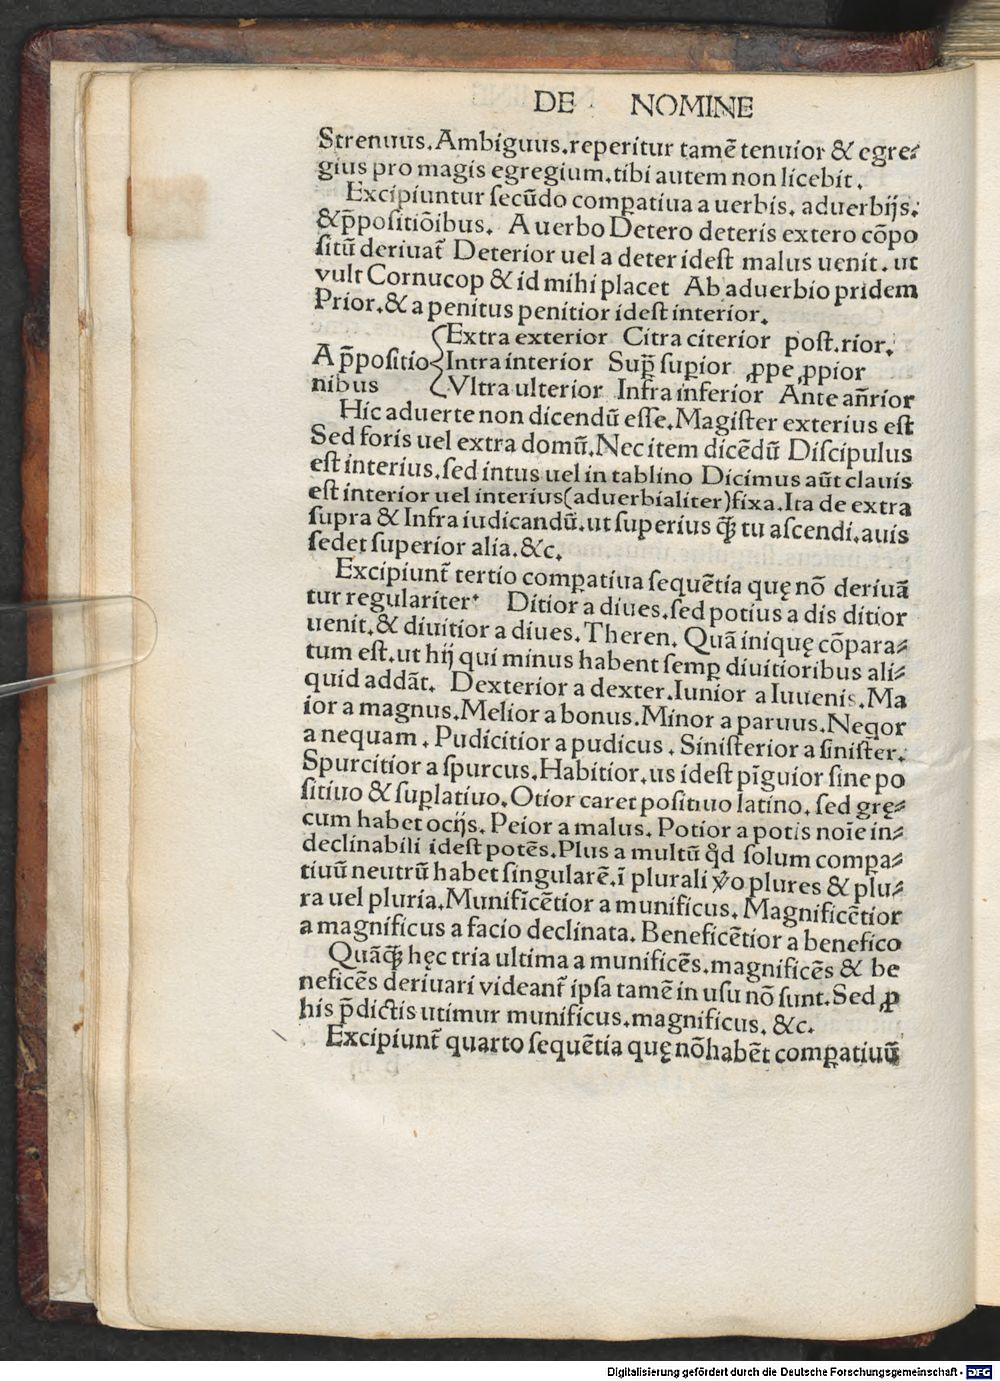 DE NOMINE
Strenuus. Ambiguus. reperitur tamē tenuior & egre⸗
gius pro magis egregium. tibi autem non licebit.
Excipiuntur ſecūdo compatiua a uerbis. aduerbijs.
& p̄poſitiōibus. A uerbo Detero deteris extero cōpo
ſitū deriuat̄ Deterior uel a deter ideſt malus uenit. ut
vult Cornucop & id mihi placet Ab aduerbio pridem
Prior. & a penitus penitior ideſt interior.
Extra exterior Citra citerior poſt.rior.
A p̄poſitio Intra interior Sup̄ ſuꝑior ꝓpe ꝓpior
nibus Vltra ulterior Infra inferior Ante an̄rior
Hic aduerte non dicendū eſſe. Magiſter exterius eſt
Sed foris uel extra domū. Nec item dicēdū Diſcipulus
eſt interius. ſed intus uel in tablino Dicimus aūt clauis
eſt interior uel interius (aduerbialiter) fixa. Ita de extra
ſupra & Infra iudicandū. ut ſuperius q̄ꝫ tu aſcendi. auis
ſedet ſuperior alia. &c.
Excipiunt̄ tertio comꝑatiua ſequētia quę nō deriuā
tur regulariter Ditior a diues. ſed potius a dis ditior
uenit. & diuitior a diues. Theren. Quā iniquę cōpara⸗
tum eſt. ut hij qui minus habent ſemꝑ diuitioribus ali⸗
quid addāt. Dexterior a dexter. Iunior a Iuuenis. Ma
ior a magnus. Melior a bonus. Minor a paruus. Neqor
a nequam. Pudicitior a pudicus. Siniſterior a ſiniſter.
Spurcitior a ſpurcus. Habitior. us ideſt pīguior ſine po
ſitiuo & ſuꝑlatiuo. Otior caret poſitiuo latino. ſed grę⸗
cum habet ocijs. Peior a malus. Potior a potis noīe in⸗
declinabili ideſt potēs. Plus a multū qd̄ ſolum compa⸗
tiuū neutrū habet ſingularē. ī plurali v̄o plures & plu⸗
ra uel pluria. Munificētior a munificus. Magnificētior
a magnificus a facio declinata. Beneficētior a benefico
Quāq̄ꝫ hęc tria ultima a munificēs. magnificēs & be
neficēs deriuari videant̄ ipſa tamē in uſu nō ſunt. Sed ꝓ
his p̄dictis utimur munificus. magnificus. &c.
Excipiunt̄ quarto ſequētia quę nō habēt comꝑatiuū
Digitalisierung gefördert durch die Deutsche Forschungsgemeinschaft - DFG